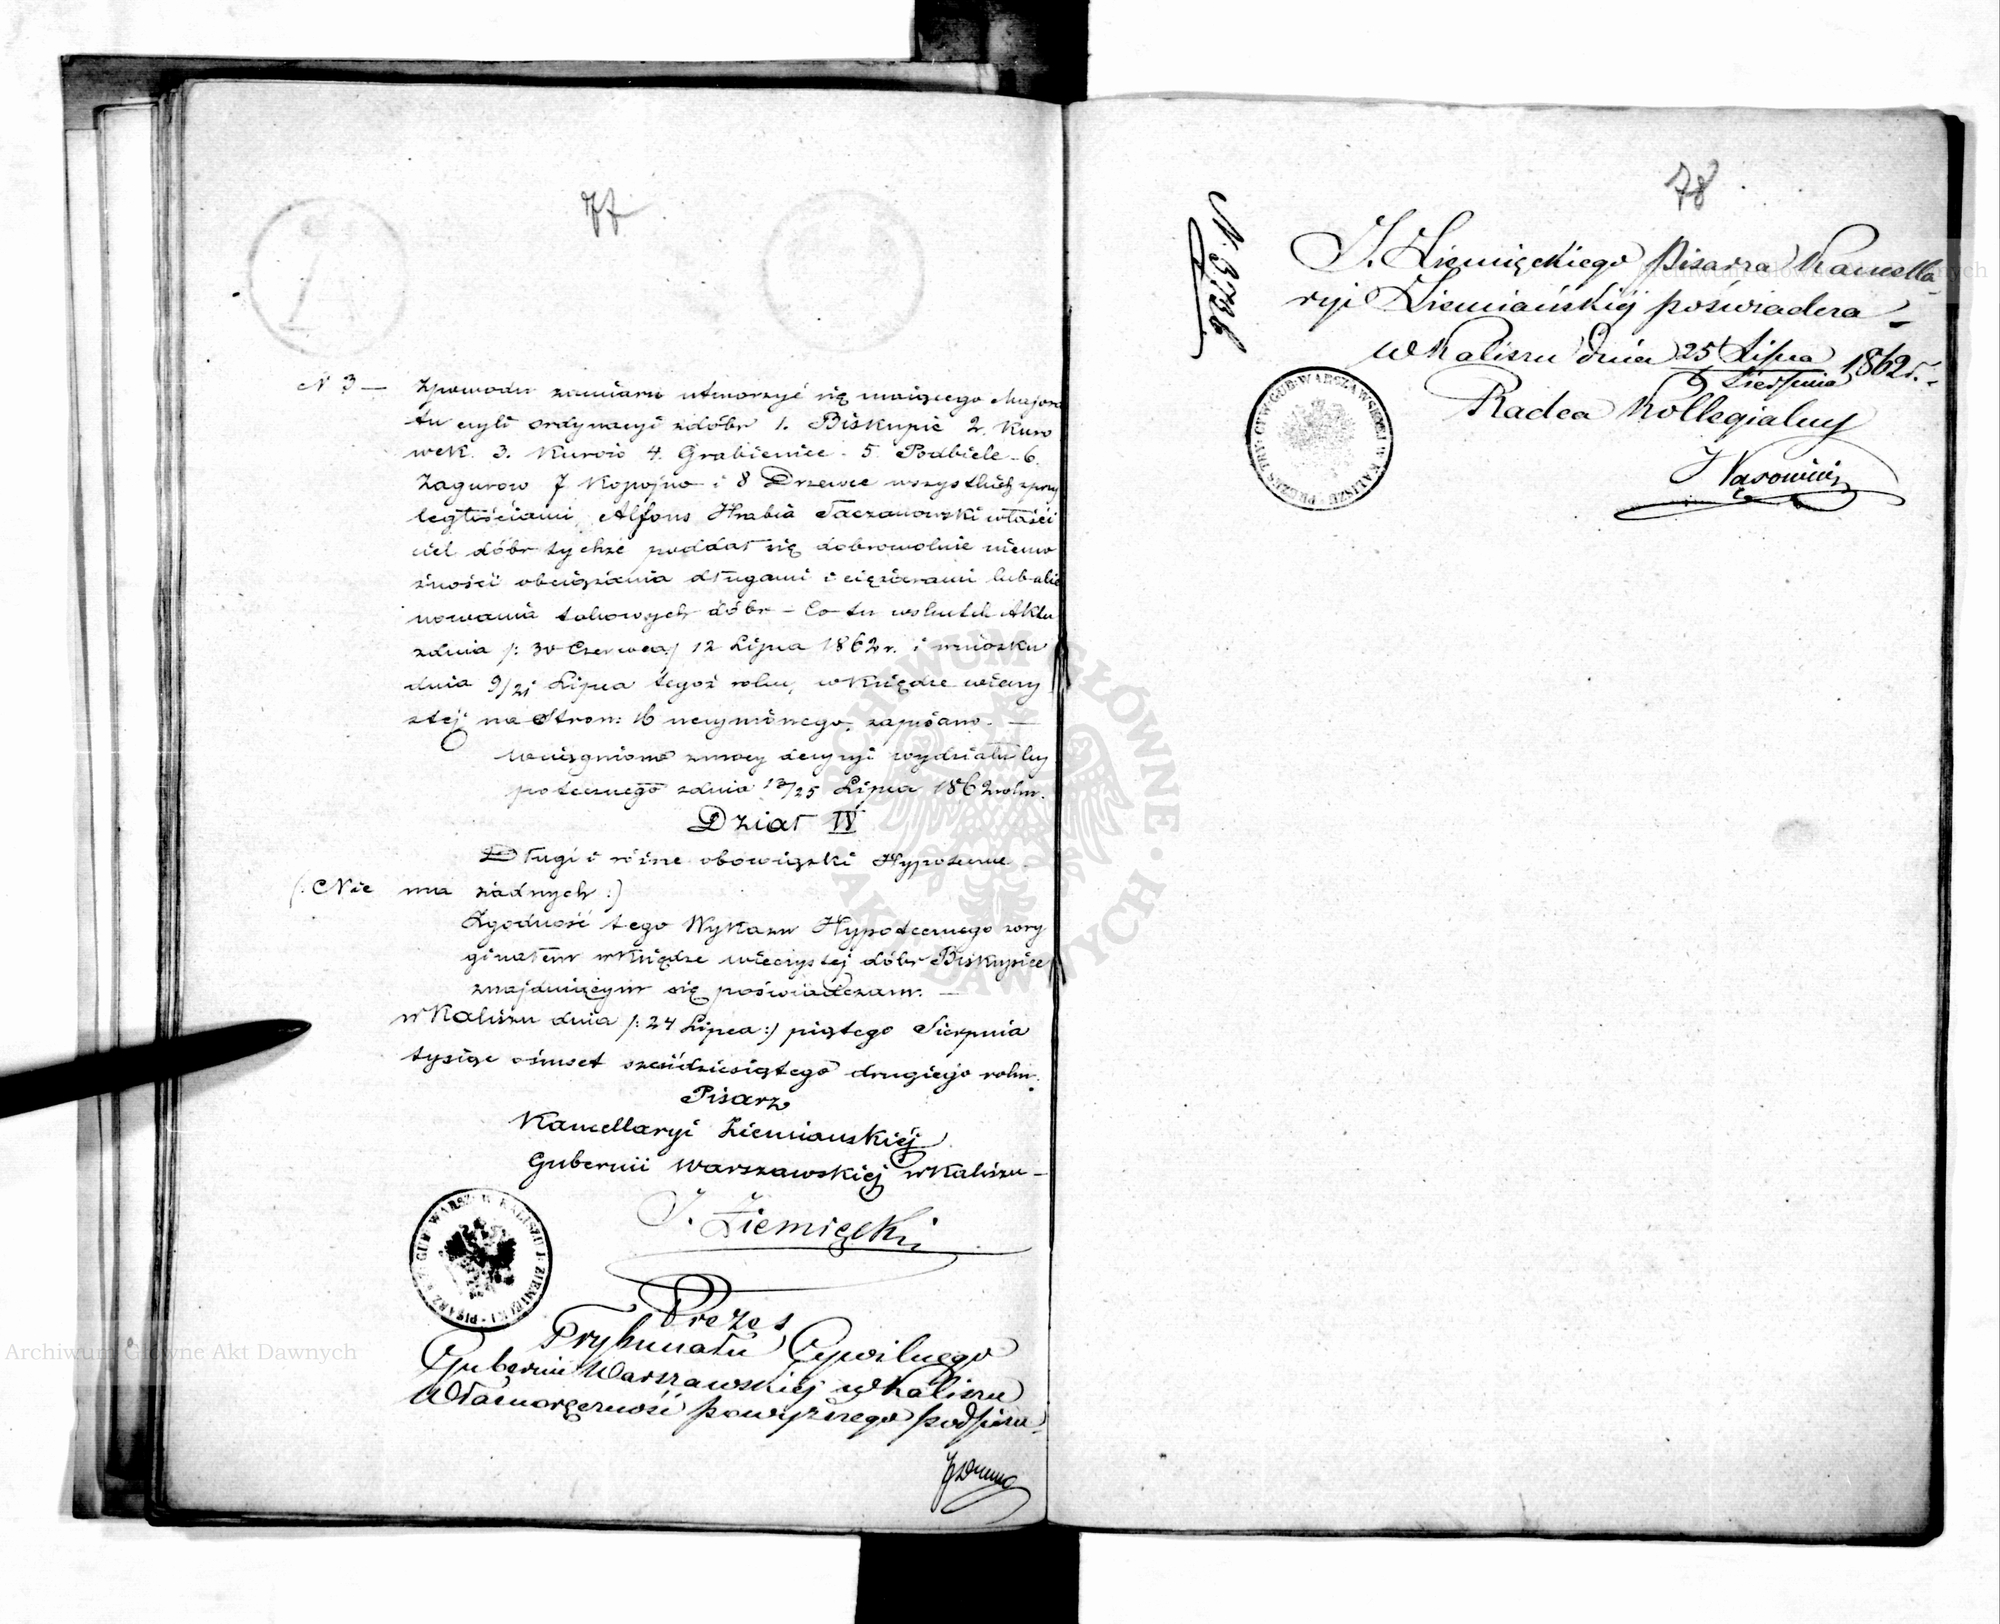 77
N 3 — Z powodu zamiaru utworzyć się maiącego Majora
tu czyli ordynacyi z dóbr 1. Biskupie 2. Kuro
wek. 3. Kurowo 4. Grabienice - 5 Podbiele - 6.
Zagurow 7 Kopojno i 8 Drzewce wszystkich z przy
ległościami, Alfons Hrabia Taczanowski właści
ciel dóbr tychże poddał się dobrowolnie niemo
żności obciążania długami i ciężarami lub alie
nowania takowych dóbr — Co tu wskutek Aktu
z dnia /: 30 Czerwca :/ 12 Lipca 1862 r. i wniosku
dnia 9/21 Lipca tegoż roku, w Księdze wieczy
stej na Stron: 16 uczynionego, zapisano. —
Wciągniono z mocy decyzyi wydziału hy
potecznego z dnia 13/25 Lipca 1862 roku.
Dział IV
Długi i różne obowiązki Hypoteczne
(: Nie ma żadnych :)
Zgodność tego Wykazu Hypotecznego z ory
ginałem w Księdze wieczystej dóbr Biskupice
znajduiącym się poświadczam. —
w Kaliszu dnia /: 24 Lipca :/ piątego Sierpnia
tysiąc ośmset sześćdziesiątego drugiego roku.
Pisarz
Kancellaryi Ziemiańskiéj
Gubernii Warszawskiej w Kaliszu —
J. Ziemięcki
PISARZ K. Z. GUB. WARSZ. W KALISZU J. ZIEMIĘCKI
Prezes
Trybunału Cywilnego
Gubernii Warszawskiej w Kaliszu
Własnoręczność powyższego podpisu
78
N. 3726
J. Ziemięckiego Pisarza Kancella
ryi Ziemiańskiéj poświadcza —
w Kaliszu dnia 25 Lipca 1862 r. —
6 Sierpnia
Radca Kollegialny
J Nasowicz
PREZES TRY: CYW: GUB: WARSZAWSKIEJ W KALISZU
Archiwum Główne Akt Dawnych
Archiwum Główne Akt Dawnych
ARCHIWUM GŁÓWNE · AKT DAWNYCH ·